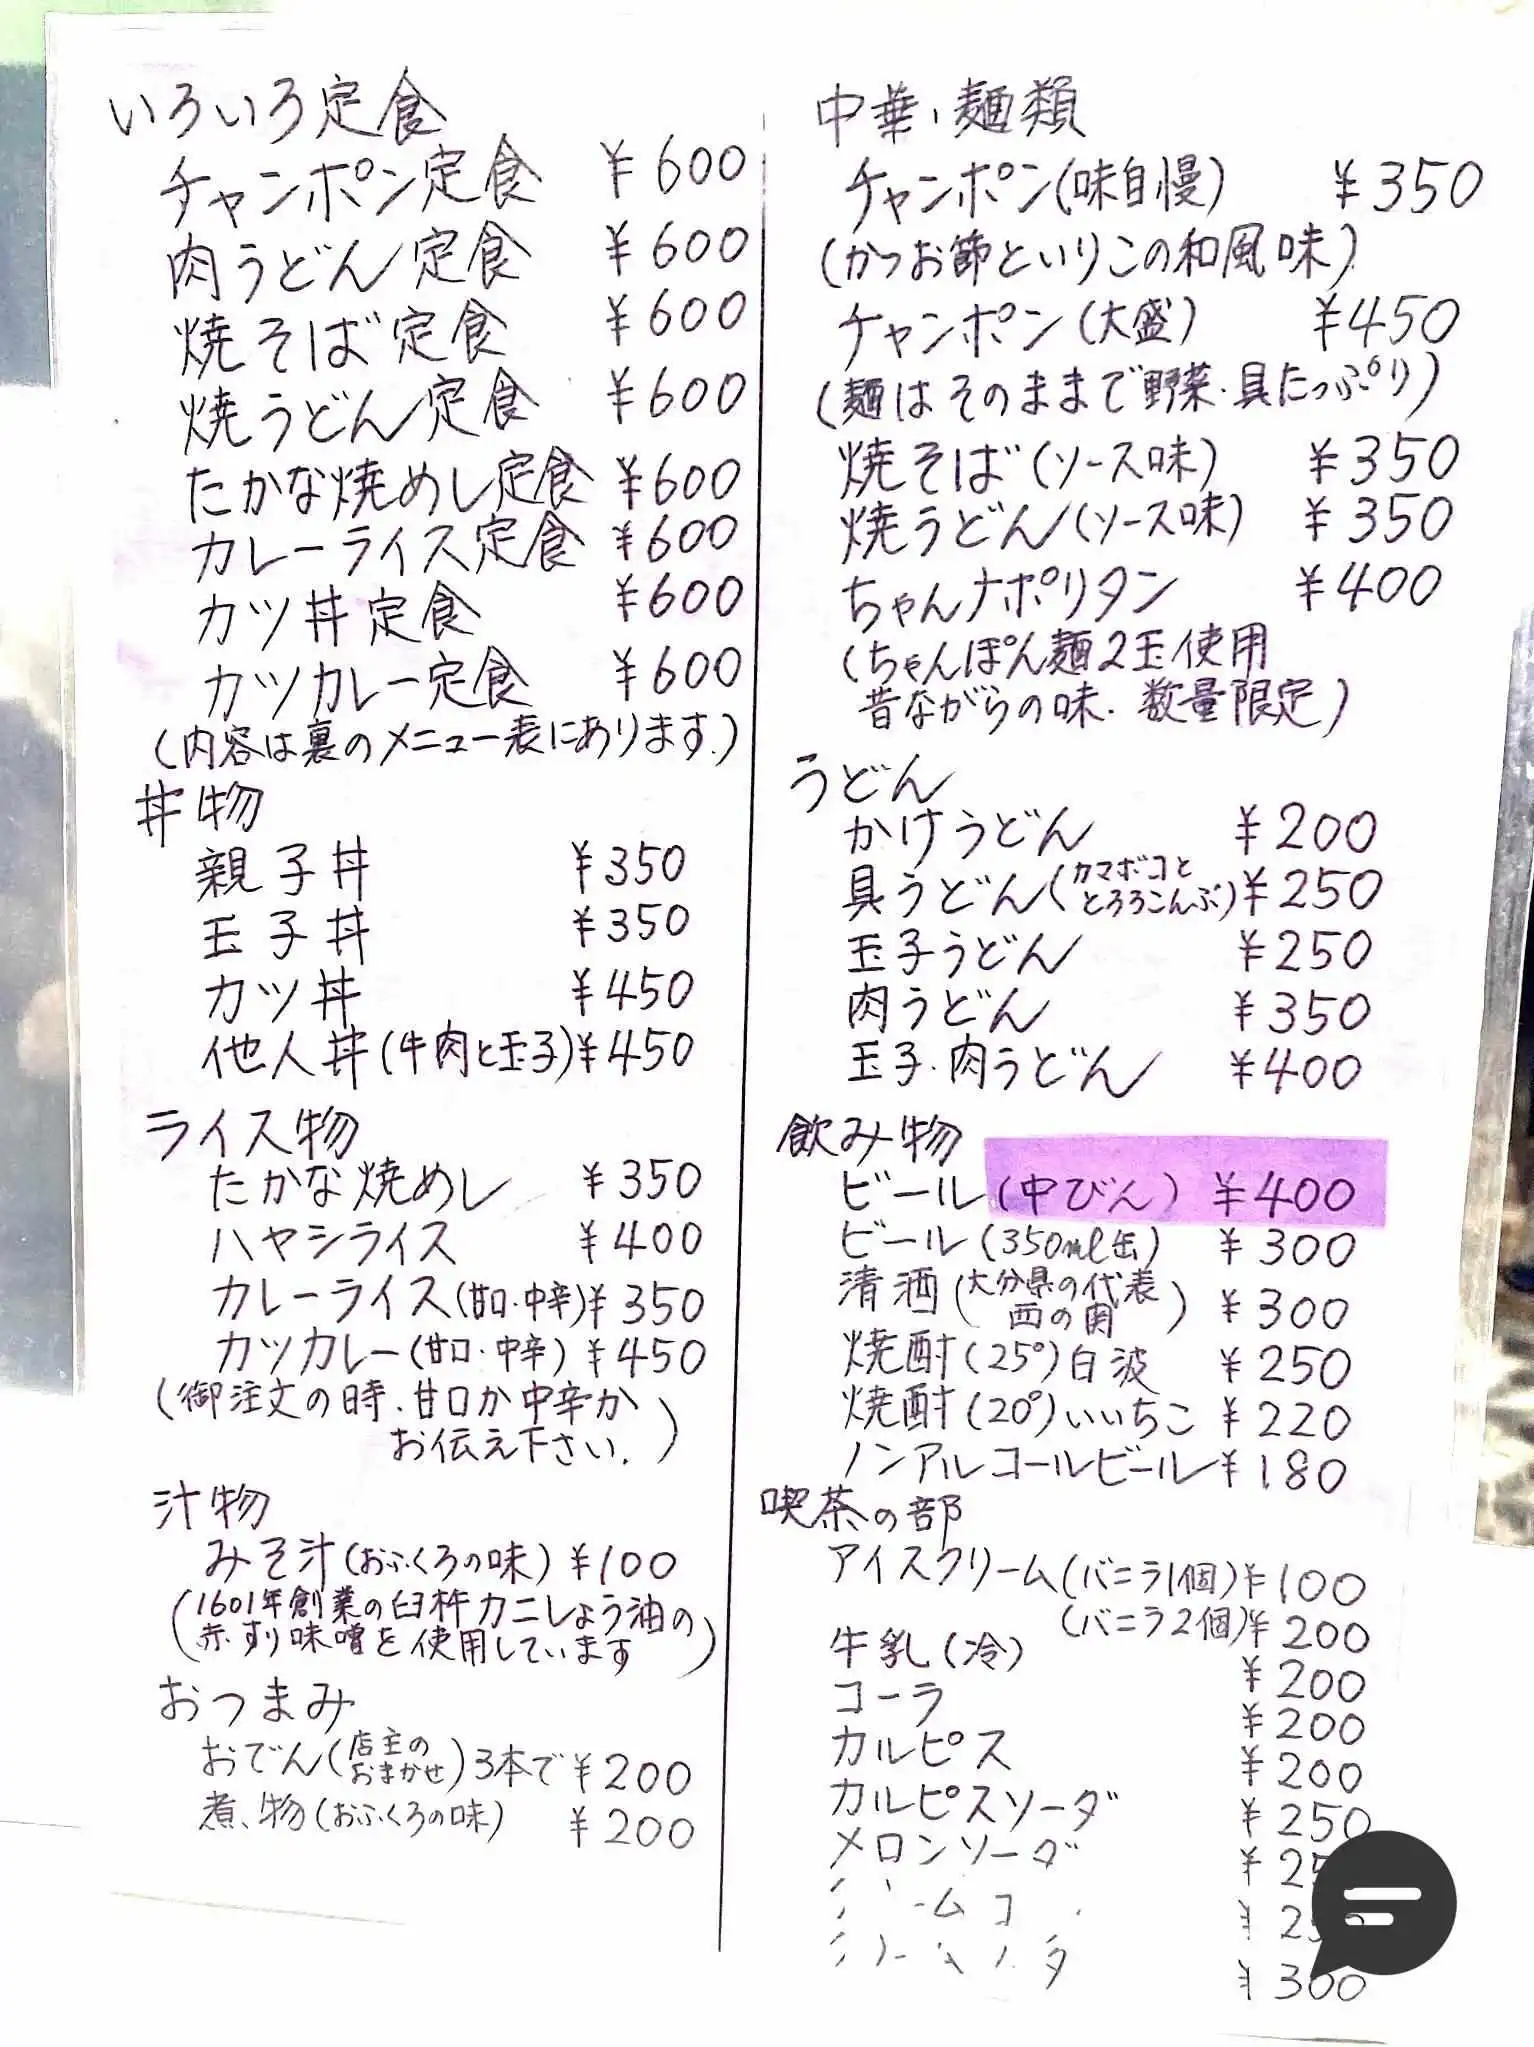 いろいろ定食
チャンポン定食 ¥600
肉うどん定食 ¥600
焼そば定食 ¥600
焼うどん定食 ¥600
たかな焼めし定食 ¥600
カレーライス定食 ¥600
カツ丼定食 ¥600
カツカレー定食 ¥600
(内容は裏のメニュー表にあります.)
丼物
親子丼 ¥350
玉子丼 ¥350
カツ丼 ¥450
他人丼(牛肉と玉子)¥450
ライス物
たかな焼めし ¥350
ハヤシライス ¥400
カレーライス(甘口・中辛)¥350
カツカレー(甘口・中辛)¥450
(御注文の時、甘口か中辛か
お伝え下さい.)
汁物
みそ汁(おふくろの味)¥100
(1601年創業の臼杵カニしょう油の
赤すり味噌を使用しています)
おつまみ
おでん(店主のおまかせ)3本で¥200
煮物(おふくろの味) ¥200
中華・麺類
チャンポン(味自慢) ¥350
(かつお節といりこの和風味)
チャンポン(大盛) ¥450
(麺はそのままで野菜・具たっぷり)
焼そば(ソース味) ¥350
焼うどん(ソース味) ¥350
ちゃんナポリタン ¥400
(ちゃんぽん麺2玉使用
昔ながらの味・数量限定)
うどん
かけうどん ¥200
具うどん(カマボコととろろこんぶ)¥250
玉子うどん ¥250
肉うどん ¥350
玉子・肉うどん ¥400
飲み物
ビール(中びん) ¥400
ビール(350ml缶) ¥300
清酒(大分県の代表
西の関) ¥300
焼酎(25°)白波 ¥250
焼酎(20°)いいちこ ¥220
ノンアルコールビール¥180
喫茶の部
アイスクリーム(バニラ1個)¥100
(バニラ2個)¥200
牛乳(冷) ¥200
コーラ ¥200
カルピス ¥200
カルピスソーダ ¥250
メロンソーダ
¥300